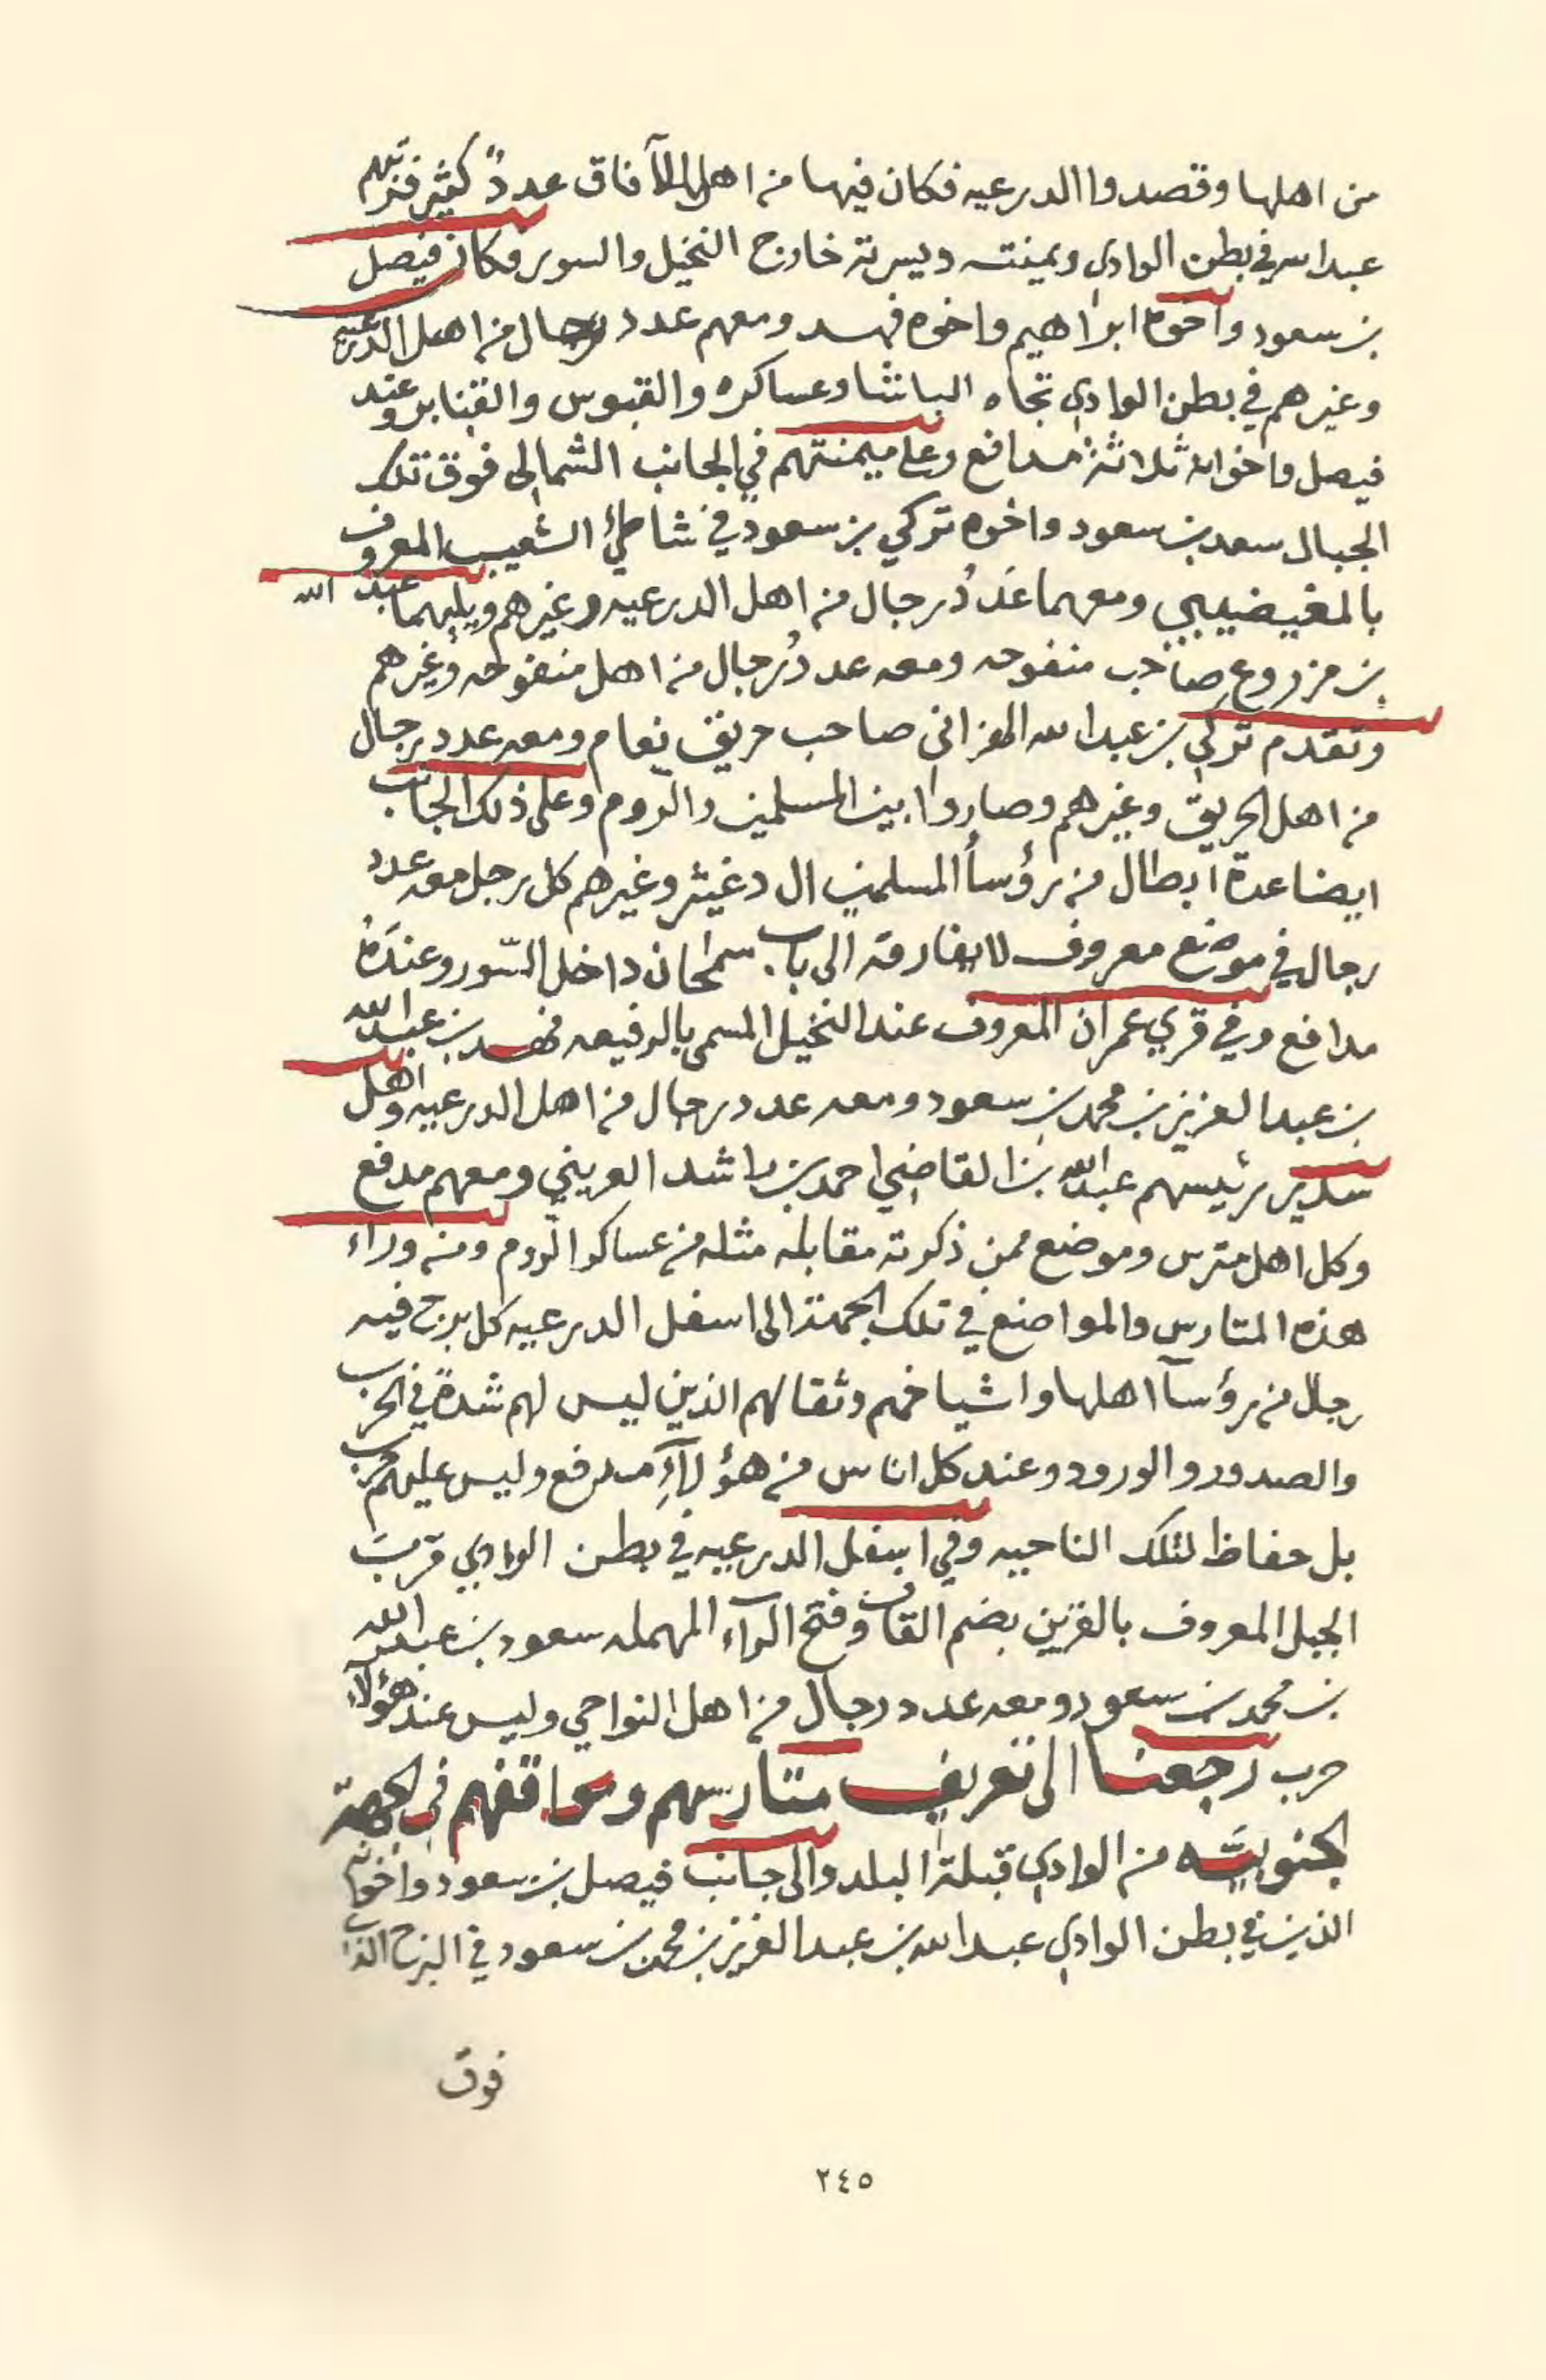 من اهلها وقصدوا الدرعيه فكان فيها من اهل الآفاق عددٌ كثير فنزلهم
عبدالله في بطن الوادي ويمينته ويسرته خارج النخيل والسور وكان فيصل
بن سعود واخوه ابراهيم واخوه فهد ومعهم عدد رجال من اهل الدرعيه
وغيرهم في بطن الوادي تجاه الباشا وعساكره والقبوس والقنابر وعند
فيصل واخوانه ثلاثة مدافع وعلى ميمنتهم في الجانب الشمالي فوق تلك
الجبال سعد بن سعود واخوه تركي بن سعود في شاطئ الشعيب المعروف
بالمغيضيبي ومعهما عَددُ رجال من اهل الدرعيه وغيرهم ويليهما عبد الله
بن مزروع صاحب منفوحه ومعه عددُ رجال من اهل منفوحه وغيرهم
وتقدم تركي بن عبدالله الهزاني صاحب حريق نعام ومعه عدد رجال
من اهل الحريق وغيرهم وصاروا بين المسلمين والروم وعلى ذلك الجانب
ايضا عدة ابطال من رؤسأ المسلمين ال دغيثر وغيرهم كل رجل معه عدد
رجال في موضع معروف لا يفارقه الى باب سمحان داخل السّور وعندَهُ
مدافع وفي قري عمران المعروف عند النخيل المسمى بالرفيعه فهد بن عبدالله
بن عبدالعزيز بن محمد بن سعود ومعه عدد رجال من اهل الدرعيه واهل
سدير رئيسهم عبدالله بن القاضي احمد بن راشد العريني ومعهم مدفع
وكل اهل مترس وموضع ممن ذكرته مقابله مثله من عساكر الرّوم ومن وراء
هذه المتارس والمواضع في تلك الجهة الى اسفل الدرعيه كل برج فيه
رجال من رؤسآ اهلها واشياخهم وثقالهم الذين ليس لهم شدةً في الحرب
والصدور والورود وعند كل اناس من هؤلآءِ مدفع وليس عليهم حرب
بل حفاظ لتلك الناحيه وفي اسفل الدرعيه في بطن الوادي قربَ
الجبل المعروف بالقرين بضم القاف وفتح الرآء المهمله سعود بن عبدالله
بن محمد بن سعود ومعه عدد رجال من اهل النواحي وليس عند هؤلآء
حرب رجعنا الى تعريف متارسهم ومواقفهم في الجهة
الجنوبيَّه من الوادي قبلة البلد والى جانب فيصل بن سعود واخوانه
الذين في بطن الوادي عبدالله بن عبدالعزيز بن محمد بن سعود في البرج الذي
فوق
٢٤٥